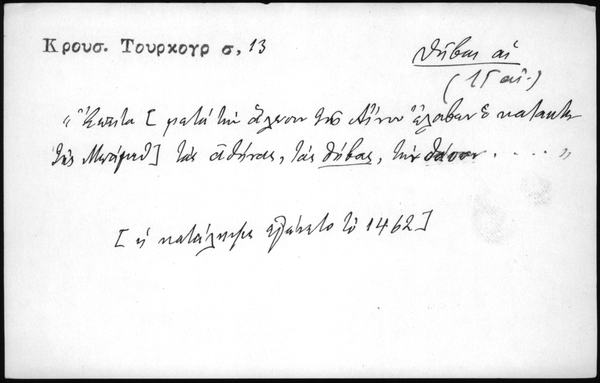 Κρουσ. Τουρκογρ σ, 13
Θῆβαι αἱ
(15 αἰ.)
"Ἔπειτα [μετὰ τὴν ἅλωσιν τῆς Αἴνου] ἔλαβεν ὁ
τὰς ἀθήνας, τὰς Θήβας, τὴν . . . . "
[ἡ κατάληψις ἐγένετο τὸ 1462]